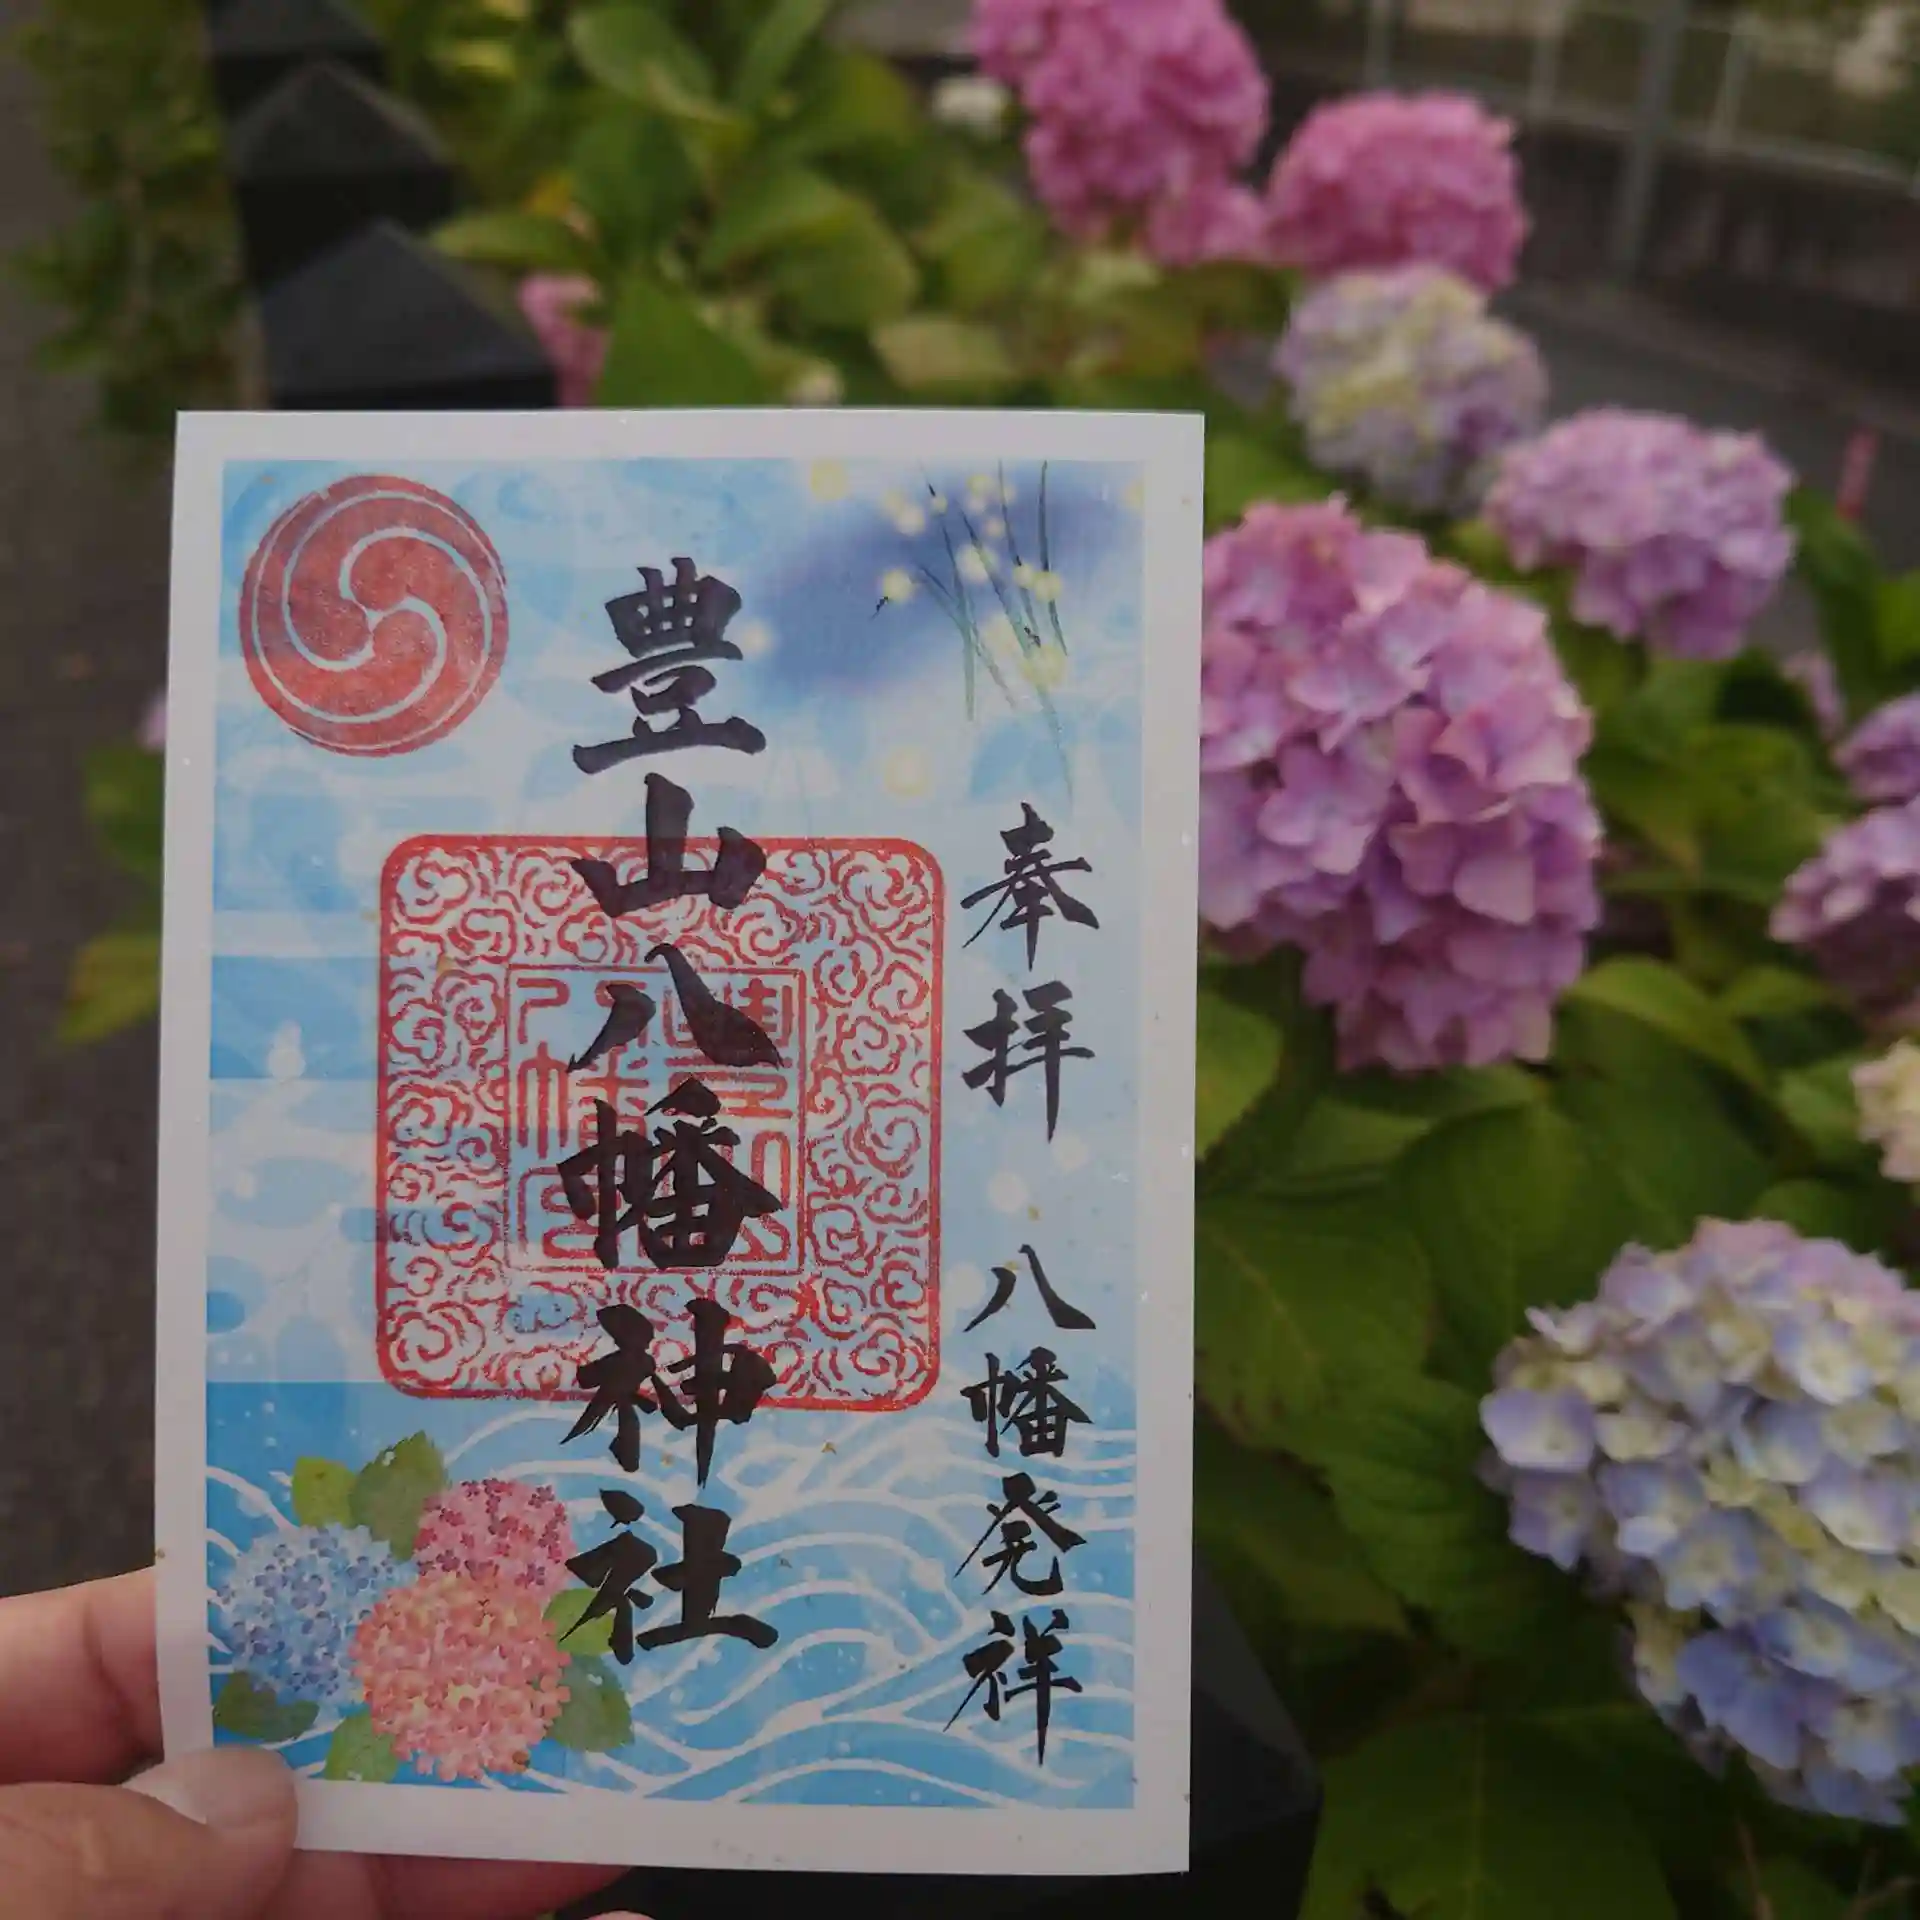 奉拝 八幡発祥
豊山八幡神社
豊山八幡宮